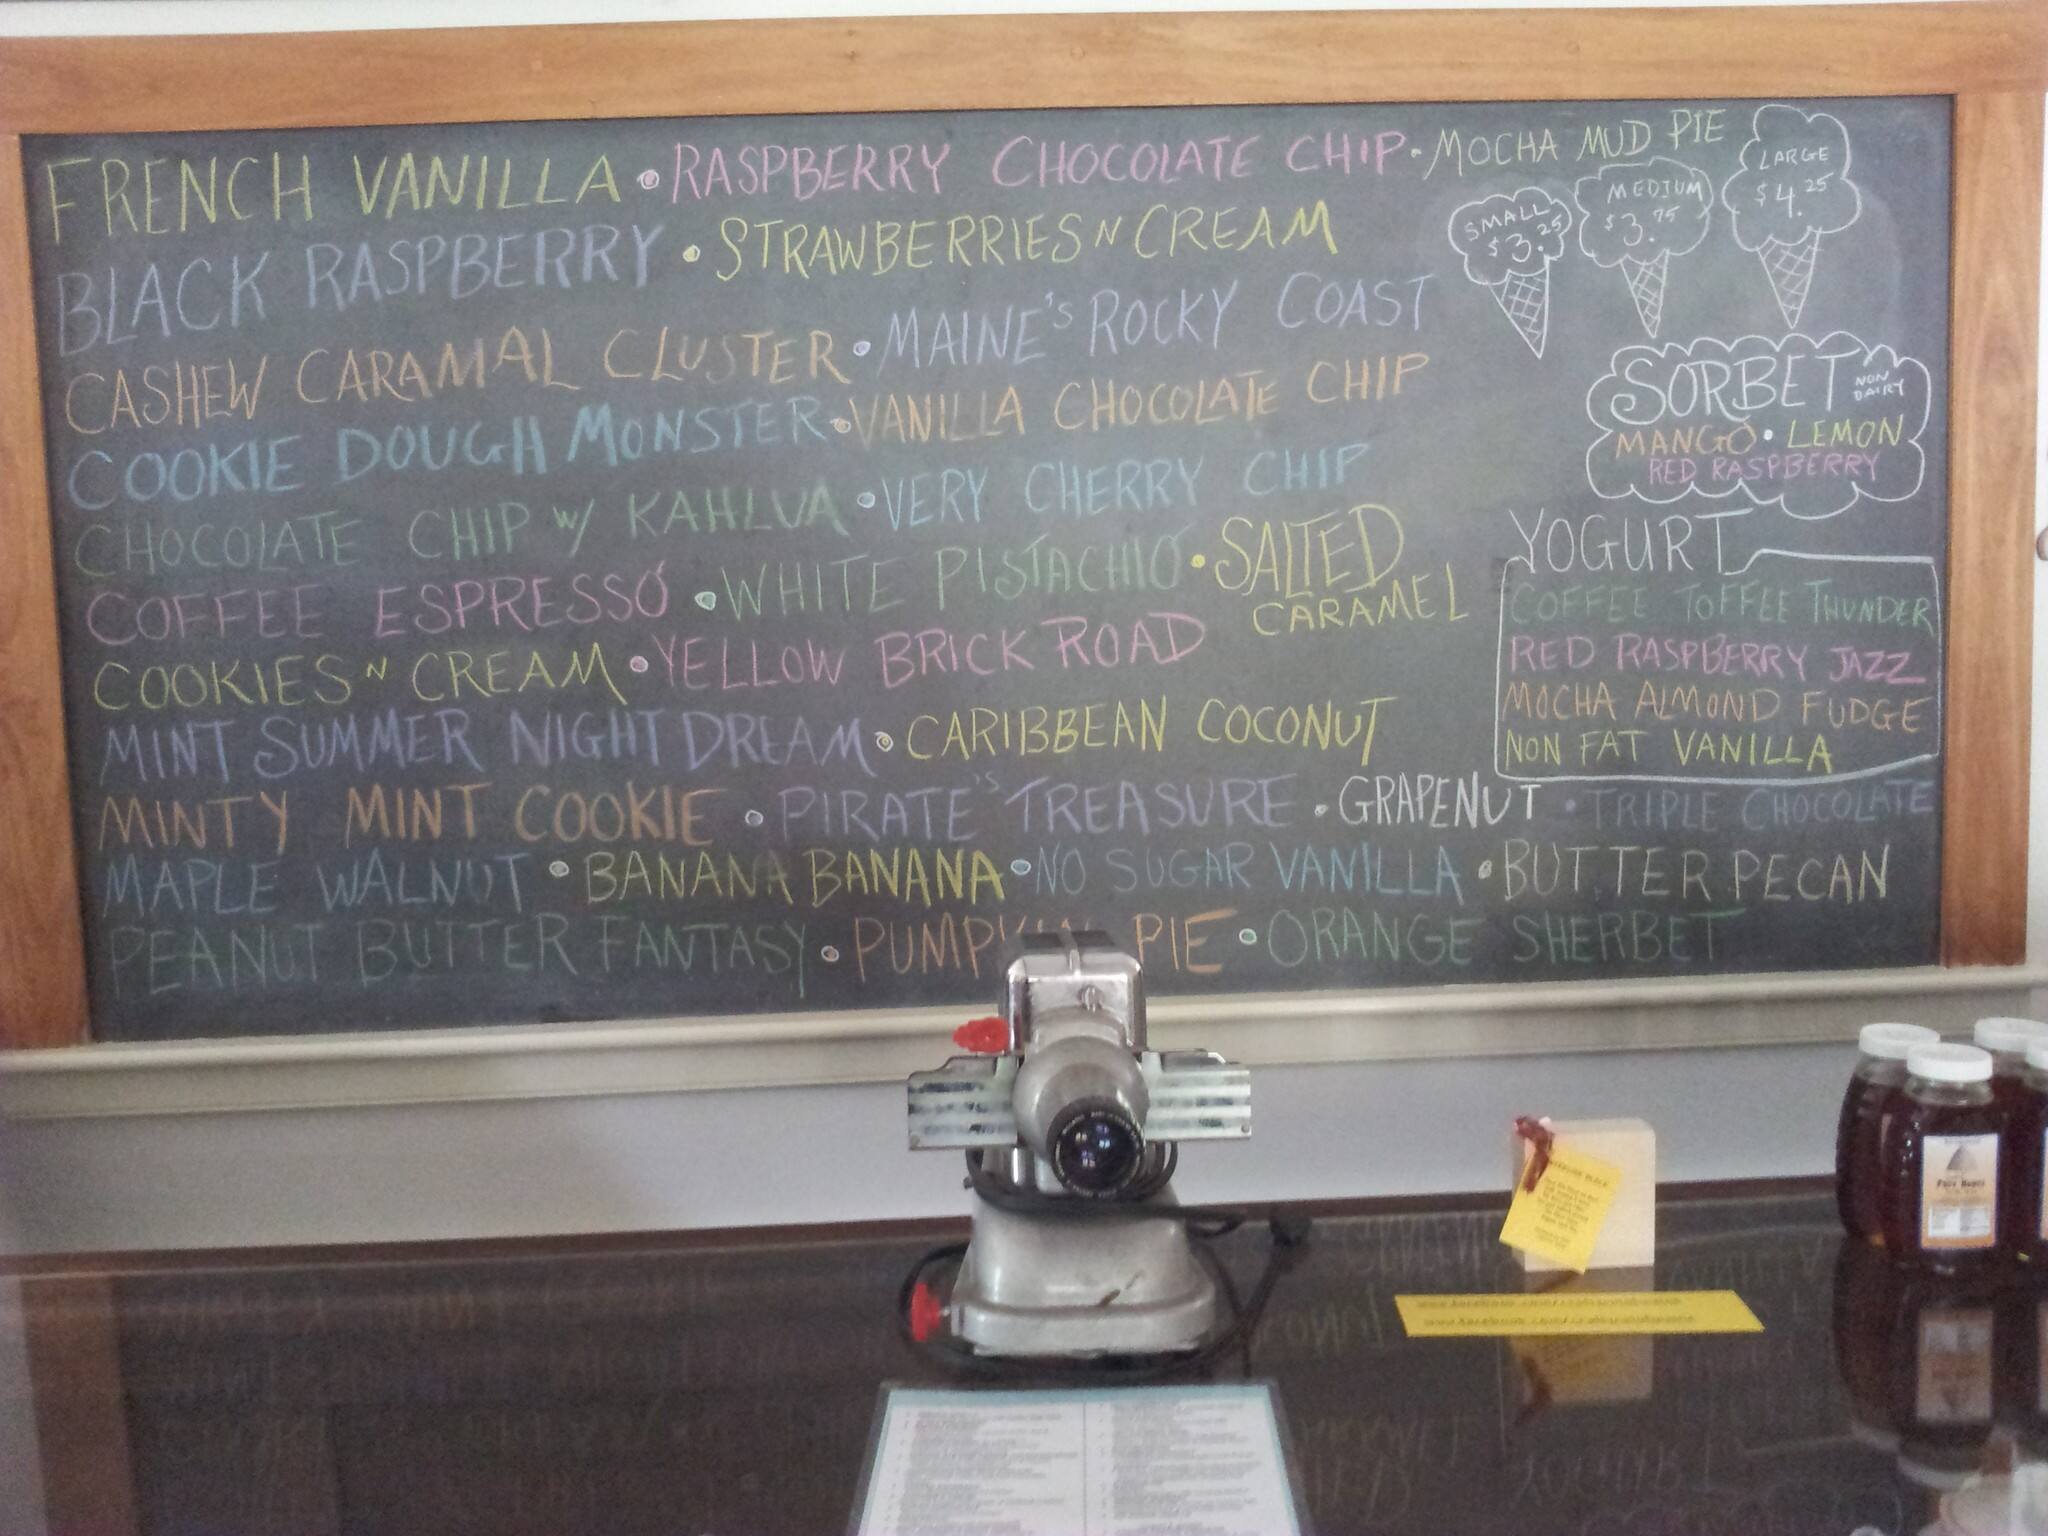 FRENCH VANILLA • RASPBERRY CHOCOLATE CHIP • MOCHA MUD PIE
BLACK RASPBERRY • STRAWBERRIES N CREAM
CASHEW CARAMAL CLUSTER • MAINE'S ROCKY COAST
COOKIE DOUGH MONSTER • VANILLA CHOCOLATE CHIP
CHOCOLATE CHIP W/ KAHLUA • VERY CHERRY CHIP
COFFEE ESPRESSO • WHITE PISTACHIO • SALTED
CARAMEL
COOKIES N CREAM • YELLOW BRICK ROAD
MINT SUMMER NIGHT DREAM • CARIBBEAN COCONUT
MINTY MINT COOKIE • PIRATE'S TREASURE • GRAPENUT • TRIPLE CHOCOLATE
MAPLE WALNUT • BANANA BANANA • NO SUGAR VANILLA • BUTTER PECAN
PEANUT BUTTER FANTASY • PUMPKIN PIE • ORANGE SHERBET
SMALL
$3.25
MEDIUM
$3.75
LARGE
$4.25
SORBET NON
DAIRY
MANGO • LEMON
RED RASPBERRY
YOGURT
COFFEE TOFFEE THUNDER
RED RASPBERRY JAZZ
MOCHA ALMOND FUDGE
NON FAT VANILLA
Pure Honey